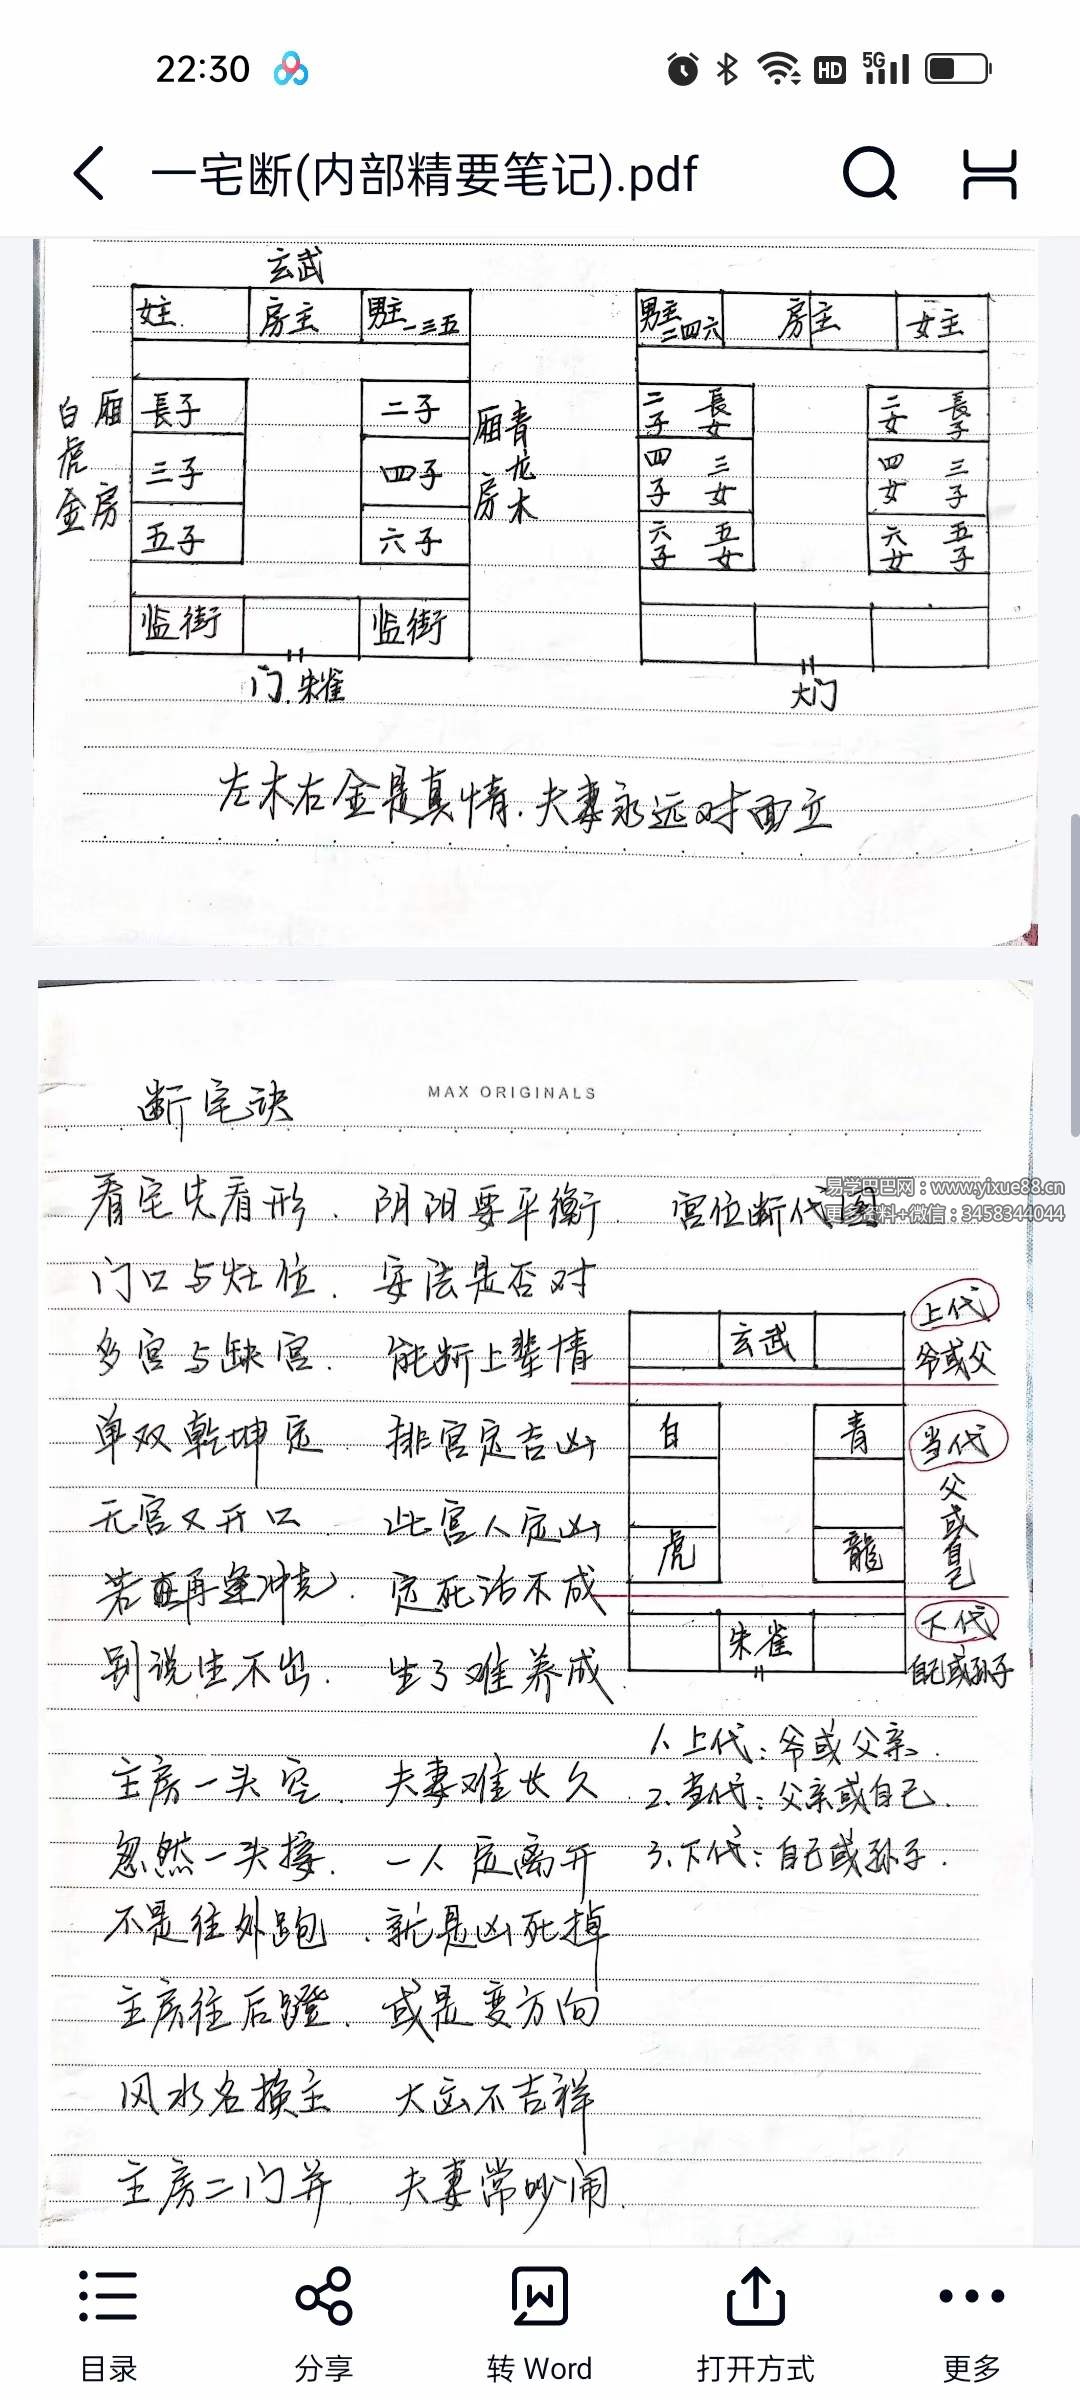 22:30
HD 5G
一宅断(内部精要笔记).pdf
玄武
女主 房主 男主 一三五
男主 二四六 房主 女主
白虎金 厢房
長子 二子
三子 四子
五子 六子
厢房 青龙木
二子 長女 二女 長子
四子 三女 四女 三子
六子 五女 六女 五子
临街 临街
门.朱雀
大门
左木右金是真情.夫妻永远对面立
MAX ORIGINALS
断宅诀
看宅先看形.阴阳要平衡.
宫位断代图
易学巴巴网：www.yixue88.cn
更多资料+微信：3458344044
门口与灶位.安法是否对
多宫与缺宫.能断上辈情
单双乾坤定.排宫定吉凶
无宫又开口.此宫人定凶
若再逢冲克.定死活不成
别说生不出.生了难养成.
玄武
白 青
虎 龍
朱雀
上代
爷或父
当代
父或自己
下代
自己或孙子
1.上代：爷或父亲.
2.当代：父亲或自己.
3.下代：自己或孙子.
主房一头空.夫妻难长久
忽然一头接.一人定离开
不是往外跑.就是凶死掉
主房往后蹬.或是变方向
风水名换主 大运不吉祥
主房二门并 夫妻常吵闹.
目录
分享
转 Word
打开方式
更多